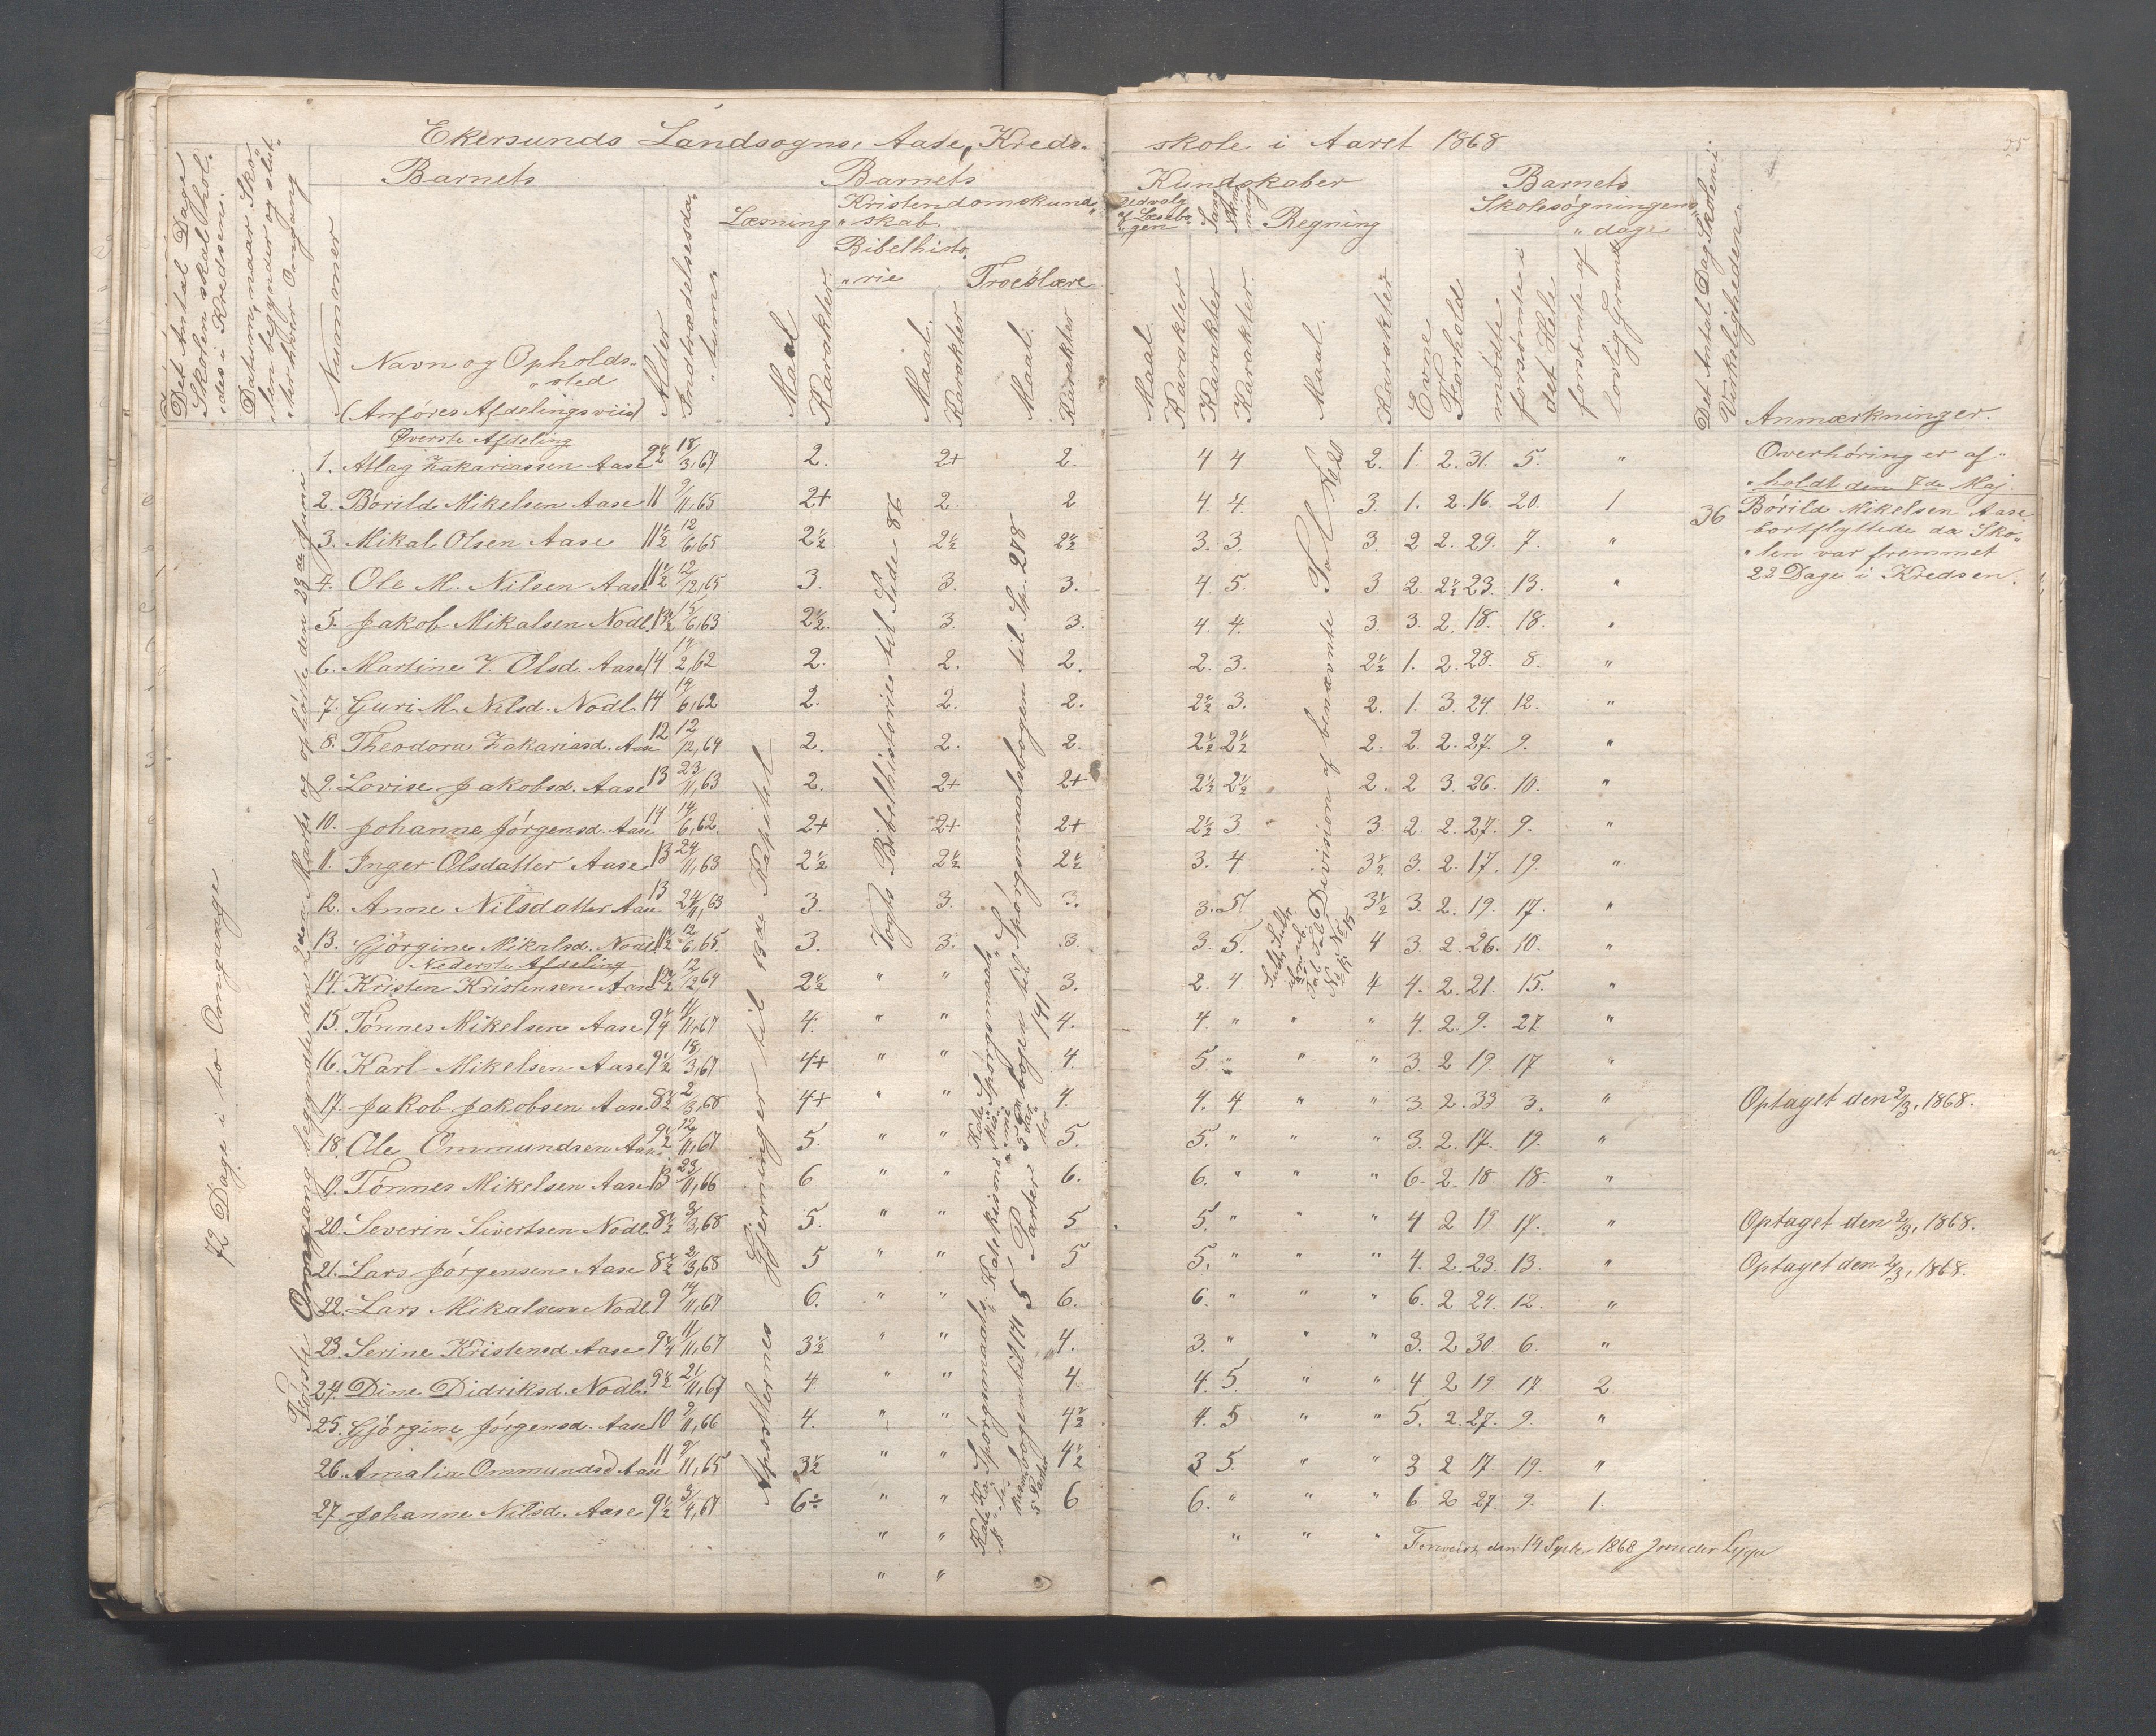 Ekersunds Landsogns, Aase, Kreds- skole i Aaret 1868
75
Barnets Barnets Kundskaber Barnets
Det Antal Dage Skolen skal hol- des i Kredsen.
Datum, naar Sko- len begynder og slut- ter hver Omgang
Nummer
Navn og Opholds- sted
(Anføres Afdelingsviis)
Alder
Indtrædelsesda- tum
Læsning
Maal Karakter
Kristendomskund- skab.
Bibelhisto- rie
Maal. Karakter
Troeslære
Maal. Karakter
Udvalg af Læsebo- gen
Maal Karakter
Sang Karakter
Skriv- ning Karakter
Regning
Maal. Karakter
Evne
Forhold
Skolesøgningens- dage
mødte
forsømte i det Hele
forsømte af lovlig Grund
Det Antal Dag Skolen i Virkeligheden
Anmærkninger.
72 Dage i to Omgange
Første Omgang begyndte den 2den Marts og ophørte den 23de Juni.
Apostlernes Gjerninger til 13de Kapitel
Vogts Bibelhistorie til Side 86
Spørgsmaalsbogen til Sp. 248
Division af benævnte Tal No 20
Øverste Afdeling
1. Atlag Zakariassen Aase 9½ 18/3,67 2. 2+ 2. 4 4 2. 1. 2. 31. 5. "
2. Børild Mikelsen Aase 11 9/11,65 2+ 2. 2 4. 4. 3. 1. 2. 16. 20. 1
3. Mikal Olsen Aase 11½ 12/6,65 2½ 2½ 2½ 3. 3. 3. 2 2. 29. 7. "
4. Ole M. Nilsen Aase 11½ 12/12,65 3. 3. 3. 4. 5. 3. 2. 2½ 23. 13. "
5. Jakob Mikalsen Nodl. 13½ 15/6,63 2½. 3. 3. 4. 4. 3. 3. 2. 18. 18. "
6. Martine Z. Olsd. Aase 14 14/2,62 2. 2. 2. 2. 3. 2½ 1. 2. 28. 8. "
7. Guri M. Nilsd. Nodl. 14 14/6,62 2. 2. 2. 2½ 3. 2. 1. 3. 24. 12. "
8. Theodora Zakariasd. Aase 12 12/12,64 2. 2. 2. 2½ 2½ 2. 2. 2. 27. 9. "
9. Lovise Jakobsd. Aase 13 23/11,63 2. 2+ 2+ 2½ 2½ 2. 2 3. 26. 10. "
10. Johanne Jørgensd. Aase 14 14/6,62. 2+ 2+ 2+ 2½ 3. 3. 2. 2. 27. 9. "
11. Inger Olsdatter Aase 13 24/11,63 2½ 2½ 2½ 3. 4 3½ 3. 2. 17. 19. "
12. Anne Nilsdatter Aase 13 24/11,63 3. 3. 3. 3. 5. 3½ 3. 2. 19. 17. "
13. Gjørgine Mikalsd. Nodl. 11½ 12/6,65 3. 3. 3. 3. 5. 4 3. 2. 26. 10. "
Nederste Afdeling
14. Kristen Kristensen Aase 12½ 12/12,64 2½ " " 3. 2. 4. 4 4. 2. 21. 15. "
15. Tønnes Mikelsen Aase 9¼ 11/11,67 4. " " 4. 4. " " " 4. 2. 9. 27. "
16. Karl Mikelsen Aase 9½ 18/3,67 4+ " " 4. 5. " " " 3. 2 19. 17 "
17. Jakob Jakobsen Aase 8½ 2/3,68 4+ " " 4. 4. 4 " " 3. 2. 33 3. " Optaget den 2/3, 1868.
18. Ole Ommundsen Aase 9½ 12/11,67 5. " " 5. 5. " " " 3. 2. 17. 19. "
19. Tønnes Mikelsen Aase 13 23/11,66 6. " " 6. 6. " " " 6. 2. 18 18. "
20. Severin Sivertsen Nodl. 8½ 2/3,68 5. " " 5 5. " " " 4 2 19. 17. " Optaget den 2/3, 1868.
21. Lars Jørgensen Aase 8½ 2/3,68 5 " " 5 5. " " " 4. 2. 23. 13. " Optaget den 2/3, 1868.
22. Lars Mikalsen Nodl. 9 14/11,67 6. " " 6. 6. " " " 6. 2 24. 12. "
23. Serine Kristensd. Aase 9¼ 11/11,67 3½ " " 4. 3. " " " 3. 2 30. 6. "
24. Dine Didriksd. Nodl. 9½ 21/11,67 4. " " 4. 4. 5. " " 4 2 19 17. 2
25. Gjørgine Jørgensd. Aase 10 9/11,66 4. " " 4½ 4. 5 " " 5. 2. 27. 9. "
26. Amalia Ommundsd Aase 11 9/11,65 3½ " " 4½ 3 5. " " 3 2 17 19. "
27. Johanne Nilsd. Aase 9½ 3/4,67 6 " " 6 6. " " " 6 2 27 9. 1.
36
Overhøring er af-
holdt den 7de Maj.
Børild Mikelsen Aase
bortflyttede da Sko-
len var fremmet
22 Dage i Kredsen.
den 14 Septe 1868